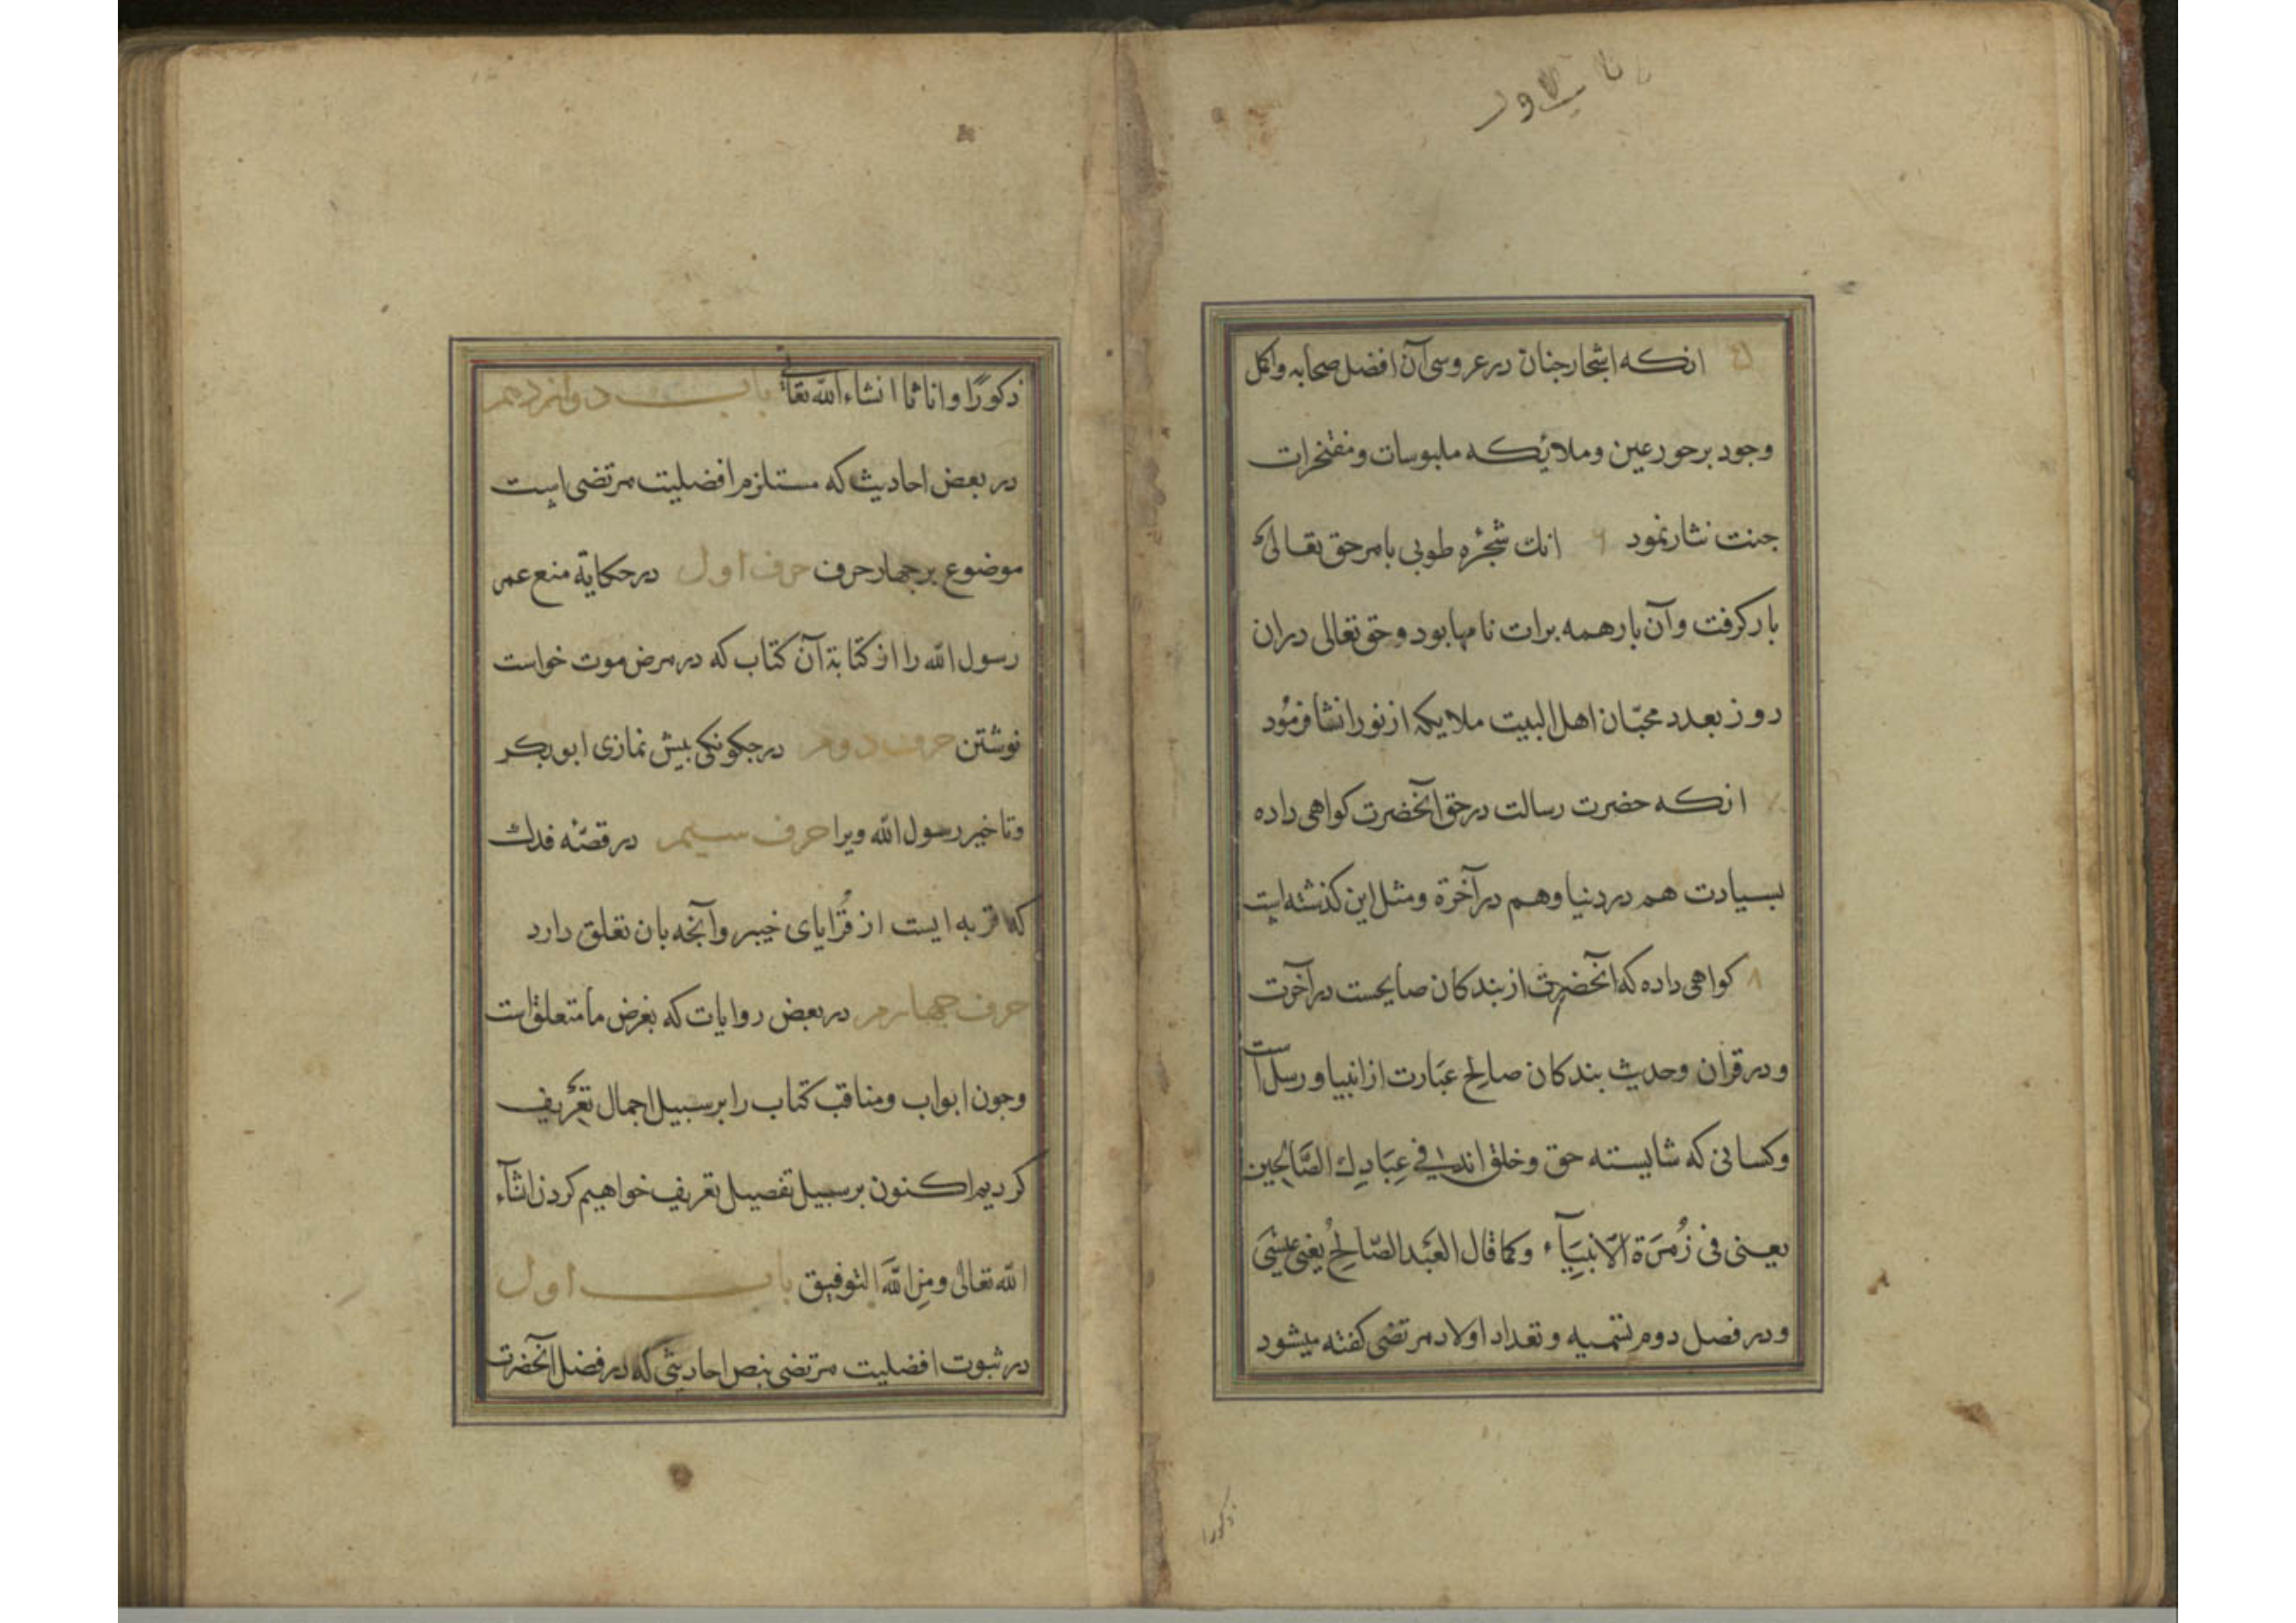 ۵ انکه اشجار جنان در عروسی آن افضل صحابه و اکمل
وجود بر حور عین و ملائکه ملبوسات و مفتخرات
جنت نثار نمود ۶ انک شجرۀ طوبی بامر حق تعالی
بار کرفت و آن بار همه برات نامها بود و حق تعالی دران
روز بعدد محبّان اهل البیت ملایکه از نور انشا فرمُود
۷ انکه حضرت رسالت در حق انحضرت کواهی داده
بسیادت هم در دنیا و هم در آخرة و مثل این کذشته است
۸ کواهی داده که آنحضرت از بندکان صالحست در آخرت
و در قران و حدیث بندکان صالح عبَارت از انبیا و رسل است
و کسانی که شایسته حق و خلق اند فی عِبَادِكَ الصَّالِحِین
یعنی فی زُمرَة الاَنبیَآء و کما قال العَبد الصّالحُ یَعنی عیسَی
و در فصل دوم تسمیه و تعداد اولاد مرتضی کفته میشود
ذکورا
ذکورًا و اناثا انشاء الله تعالی باب دوازدهم
در بعض احادیث که مستلزم افضلیت مرتضی است
موضوع بر جهار حرف حرف اول در حکایة منع عمر
رسول الله را از کتابة آن کتاب که در مرض موت خواست
نوشتن حرف دوم در جکونکی بیش نمازی ابوبکر
و تاخیر رسول الله ویرا حرف سیم در قصّه فدك
که قریه ایست از قُرایای خیبر و آنجه بان تعلق دارد
حرف جهارم در بعض روایات که بغرض ما متعلق است
و جون ابواب و مناقب کتاب را بر سبیل اجمال تعریف
کردیم اکنون بر سبیل تفصیل تعریف خواهیم کردن انشآء
الله تعالی و مِنَ اللهَ التوفیق باب اول
در ثبوت افضلیت مرتضی بنص احادیثی که در فضل آنحضرت